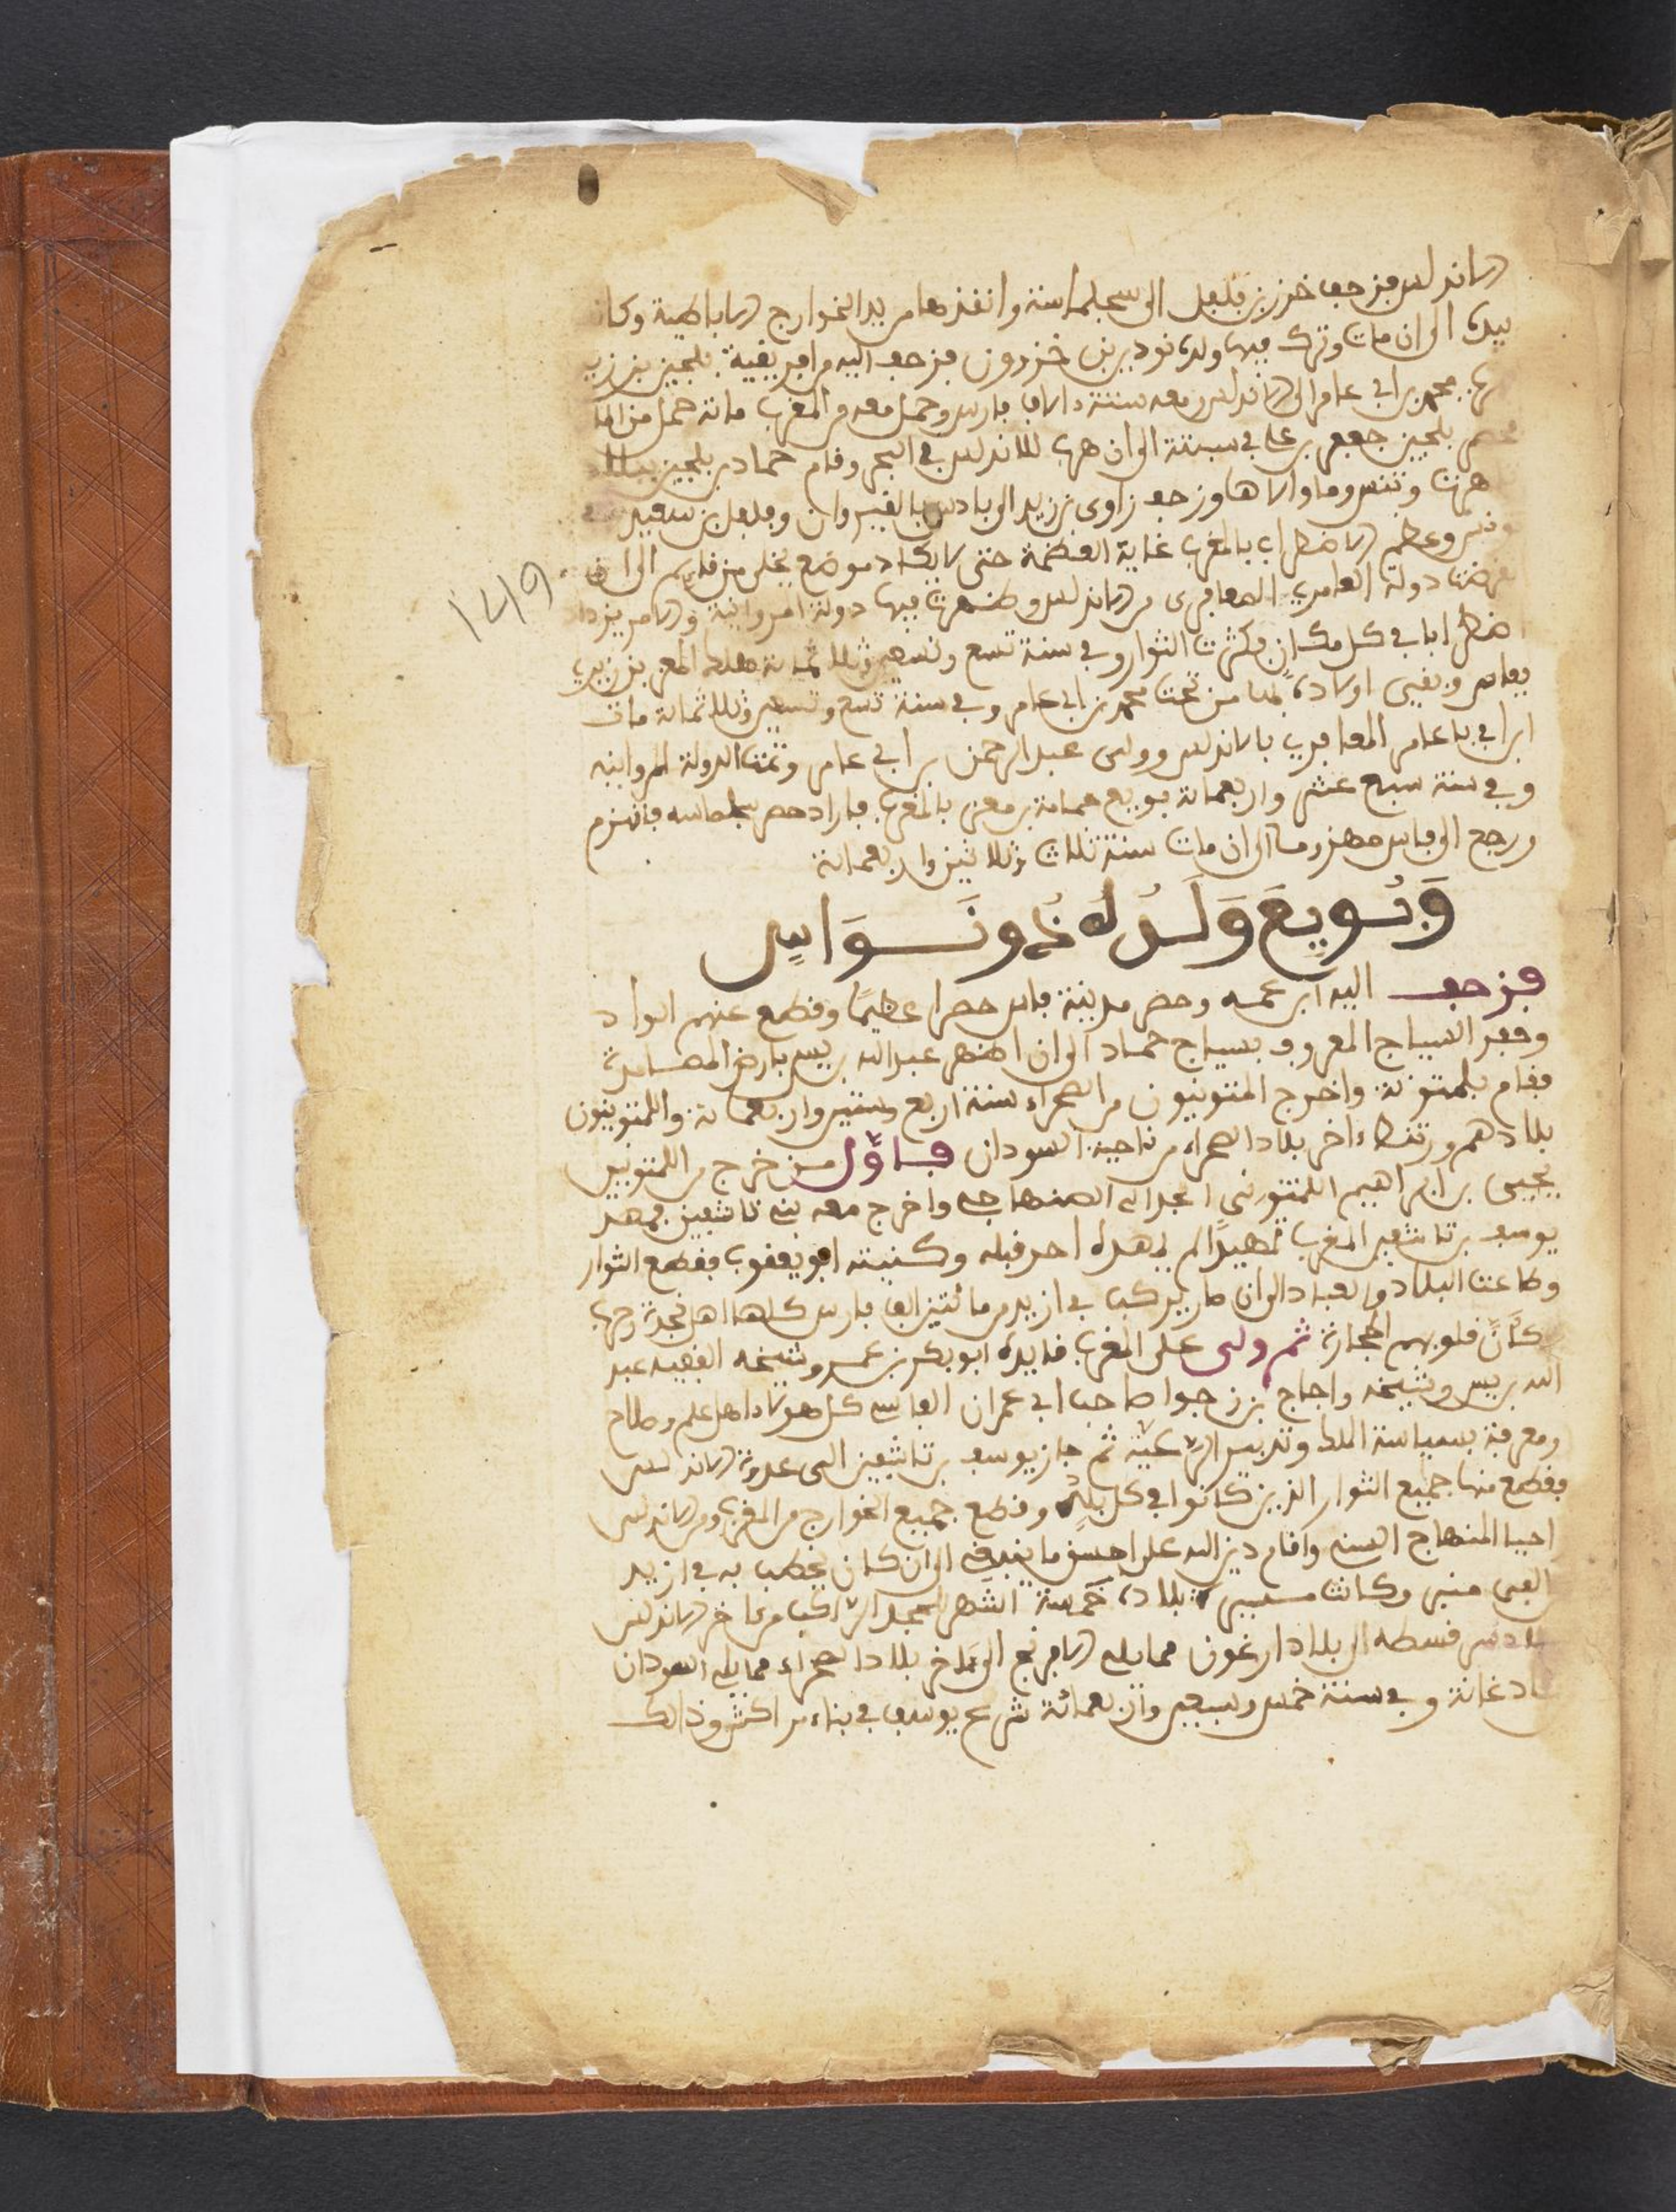 الاندلس فزحف خزر بن فلفل الى سجلماسة وانقذها من يد الخوارج الاباضية وكانت
بيده الى ان مات وترك فيها ولده نودير بن خزرون فزحف اليه من افريقية بلجين بن زيري
محمد بن ابي عامر الى الاندلس معه ستة ءالاف فارس وحمل معه من المغرب مائة حمل من المال
بلجين جعفر بن علي في سبتة الى ان هرب للاندلس في البحر وقام حماد بن بلجين ببلاد
هرت وتنس وما والاها وزحف زاوي بن زيد الى باديس بالقيروان وفلفل بن سعيد
وعظم الاضطراب بالمغرب غاية العظمة حتى لا يكاد موضع يخلى من قايم الى ان
دولة العامري المعافري من الاندلس وظهرت فيها دولة المروانية والامر يزداد
اضطرابا في كل مكان فكثرت الثوار وفي سنة تسع وتسعين وثلاثمائة هلك المعز بن زيري
بفاس وبقيى اولاده بها من تحت محمد بن ابي عامر وفي سنة تسع وتسعين وثلاثمائة مات
ابن ابي عامر المعافري بالاندلس وولى عبد الرحمن بن ابي عامر وتمت الدولة المروانيه
وفي سنة سبع عشر واربعمائة بويع حمامة بن معز بالمغرب فاراد حصر سجلماسه فانهزم
ورجع الى فاس مهزوما الى ان مات سنة ثلاث وثلاثين واربعمائة
وَبُويِعَ وَلَدُهُ نُونَوَاسٍ
فزحف اليه ابن عمه وحصر مدينة فاس حصرا عظيمًا وقطع عنهم المواد
وحفر السياج المعروف بسياج حماد الى ان اظهر عبد الله بن يس بارض المصامدة
فقام بلمتونة واخرج المتونيون من الصحراء سنة اربع وستين واربعمائة واللمتونيون
بلادهم ورتنطاء اخر بلاد الصحراء من ناحية السودان فاوّل من خرج من اللمتونيين
يحيى بن ابراهيم اللمتوني الجدالي الصنهاجي واخرج معه بني تاشفين فمهد
يوسف بن تاشفين المغرب تمهيدًا لم يمهده احد قبله وكنيته ابو يعقوب فقطع الثوار
وطاعت البلاد والعباد الى ان صار يركب في ازيد من مائتين الف فارس كلها اهل نجدة وحرب
كأنّ قلوبهم الحجارة ثم ولى على المغرب قايده ابو بكر بن عمر وشيخه الفقيه عبد
الله بن يس وشيخه واجاج بن زجوا صاحب ابي عمران الفاسي كل هولاء اهل علم وصلاح
ومعرفة بسياسة الملك وتدبير الرّعية ثم جاز يوسف بن تاشفين الى عدوة الاندلس
فقطع منها جميع الثوار الذين كانوا في كل بلدٍ وقطع جميع الخوارج من المغرب ومن الاندلس
احيا المنهاج السني واقام دين الله على احسن ما ينبغي الى ان كان يخطب به في ازيد
الفي منبر وكانت مسيرة بلاده خمسة اشهر للمجد الرّاكب من ءاخر الاندلس
بلاد سرقسطه الى بلاد ارغون مما يلي الافرنج الى ءاخر بلاد الصحراء مما يلي السودان
بلاد غانة وفي سنة خمس وسبعين واربعمائة شرع يوسف في بناء مراكش وذالك